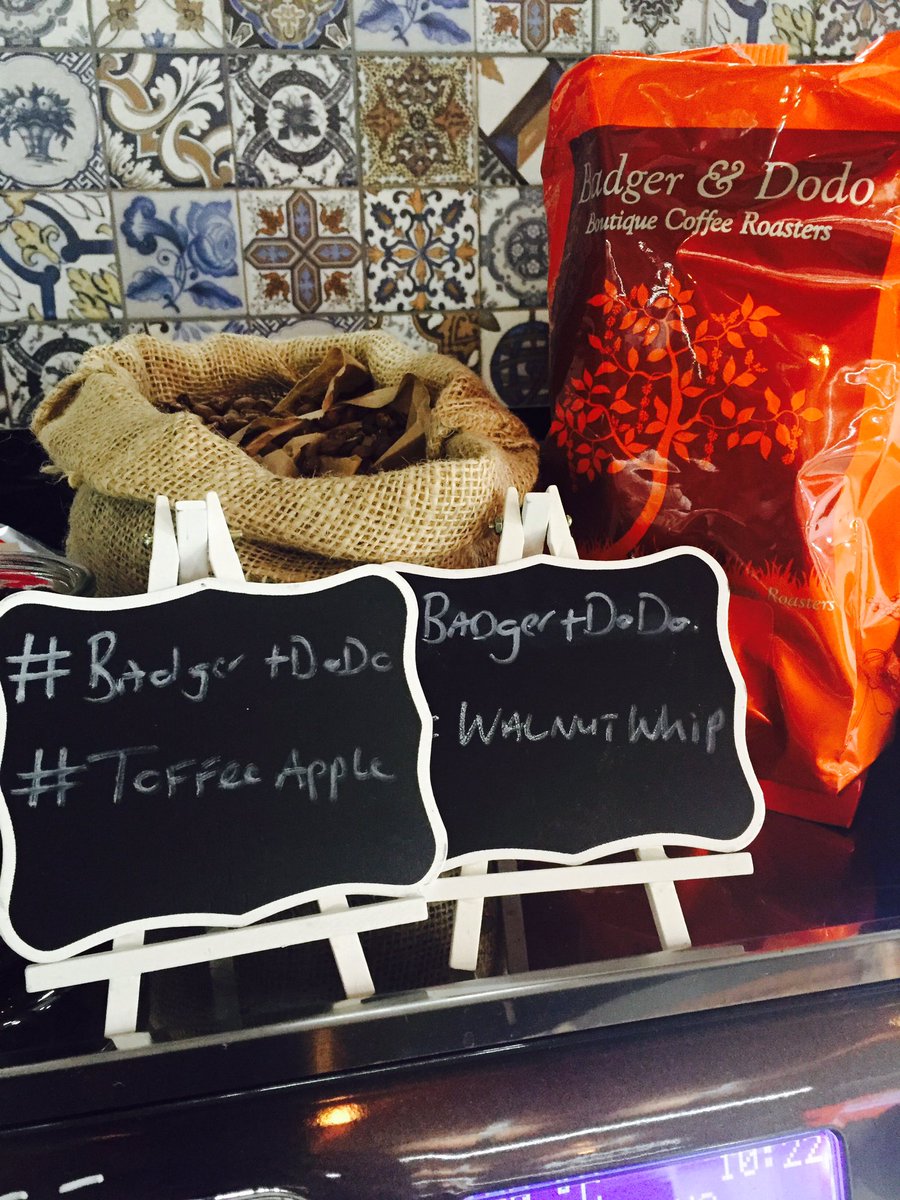 Badger & Dodo
Boutique Coffee Roasters
Roasters
#Badger+DoDo
#Toffee Apple
Badger+DoDo.
: WALNUT Whip
10:22